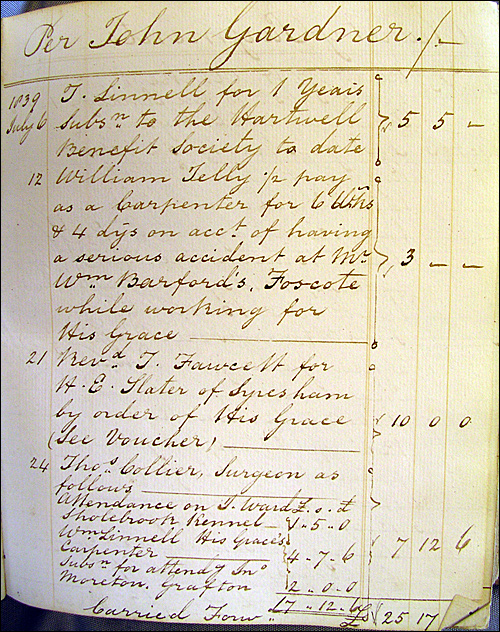 Per John Gardner. /-
1839 T. Linnell for 1 Years
July 6 Subsn to the Hartwell „ 5 5 –
Benefit Society to date
12 William Telly ½ pay
as a Carpenter for 6 Wks
& 4 dys on acct of having
a serious accident at Mr „ 3 – –
Wm Barford's, Foscote
while working for
His Grace
21 Revd T. Fawcett for
H. E. Slater of Syresham
by order of His Grace 10 0 0
(See Voucher)
24 Thos Collier, Surgeon as
follows
Attendance on J. Ward £. s. d
Sholebrook Kennel 1 „ 5 „ 0
Wm Linnell His Graces
Carpenter 4 „ 7 „ 6 7 12 6
Subsn for attendg Ino
Moreton. Grafton 2 „ 0 „ 0
£7 „ 12 „ 6
Carried Forw £ 25 17